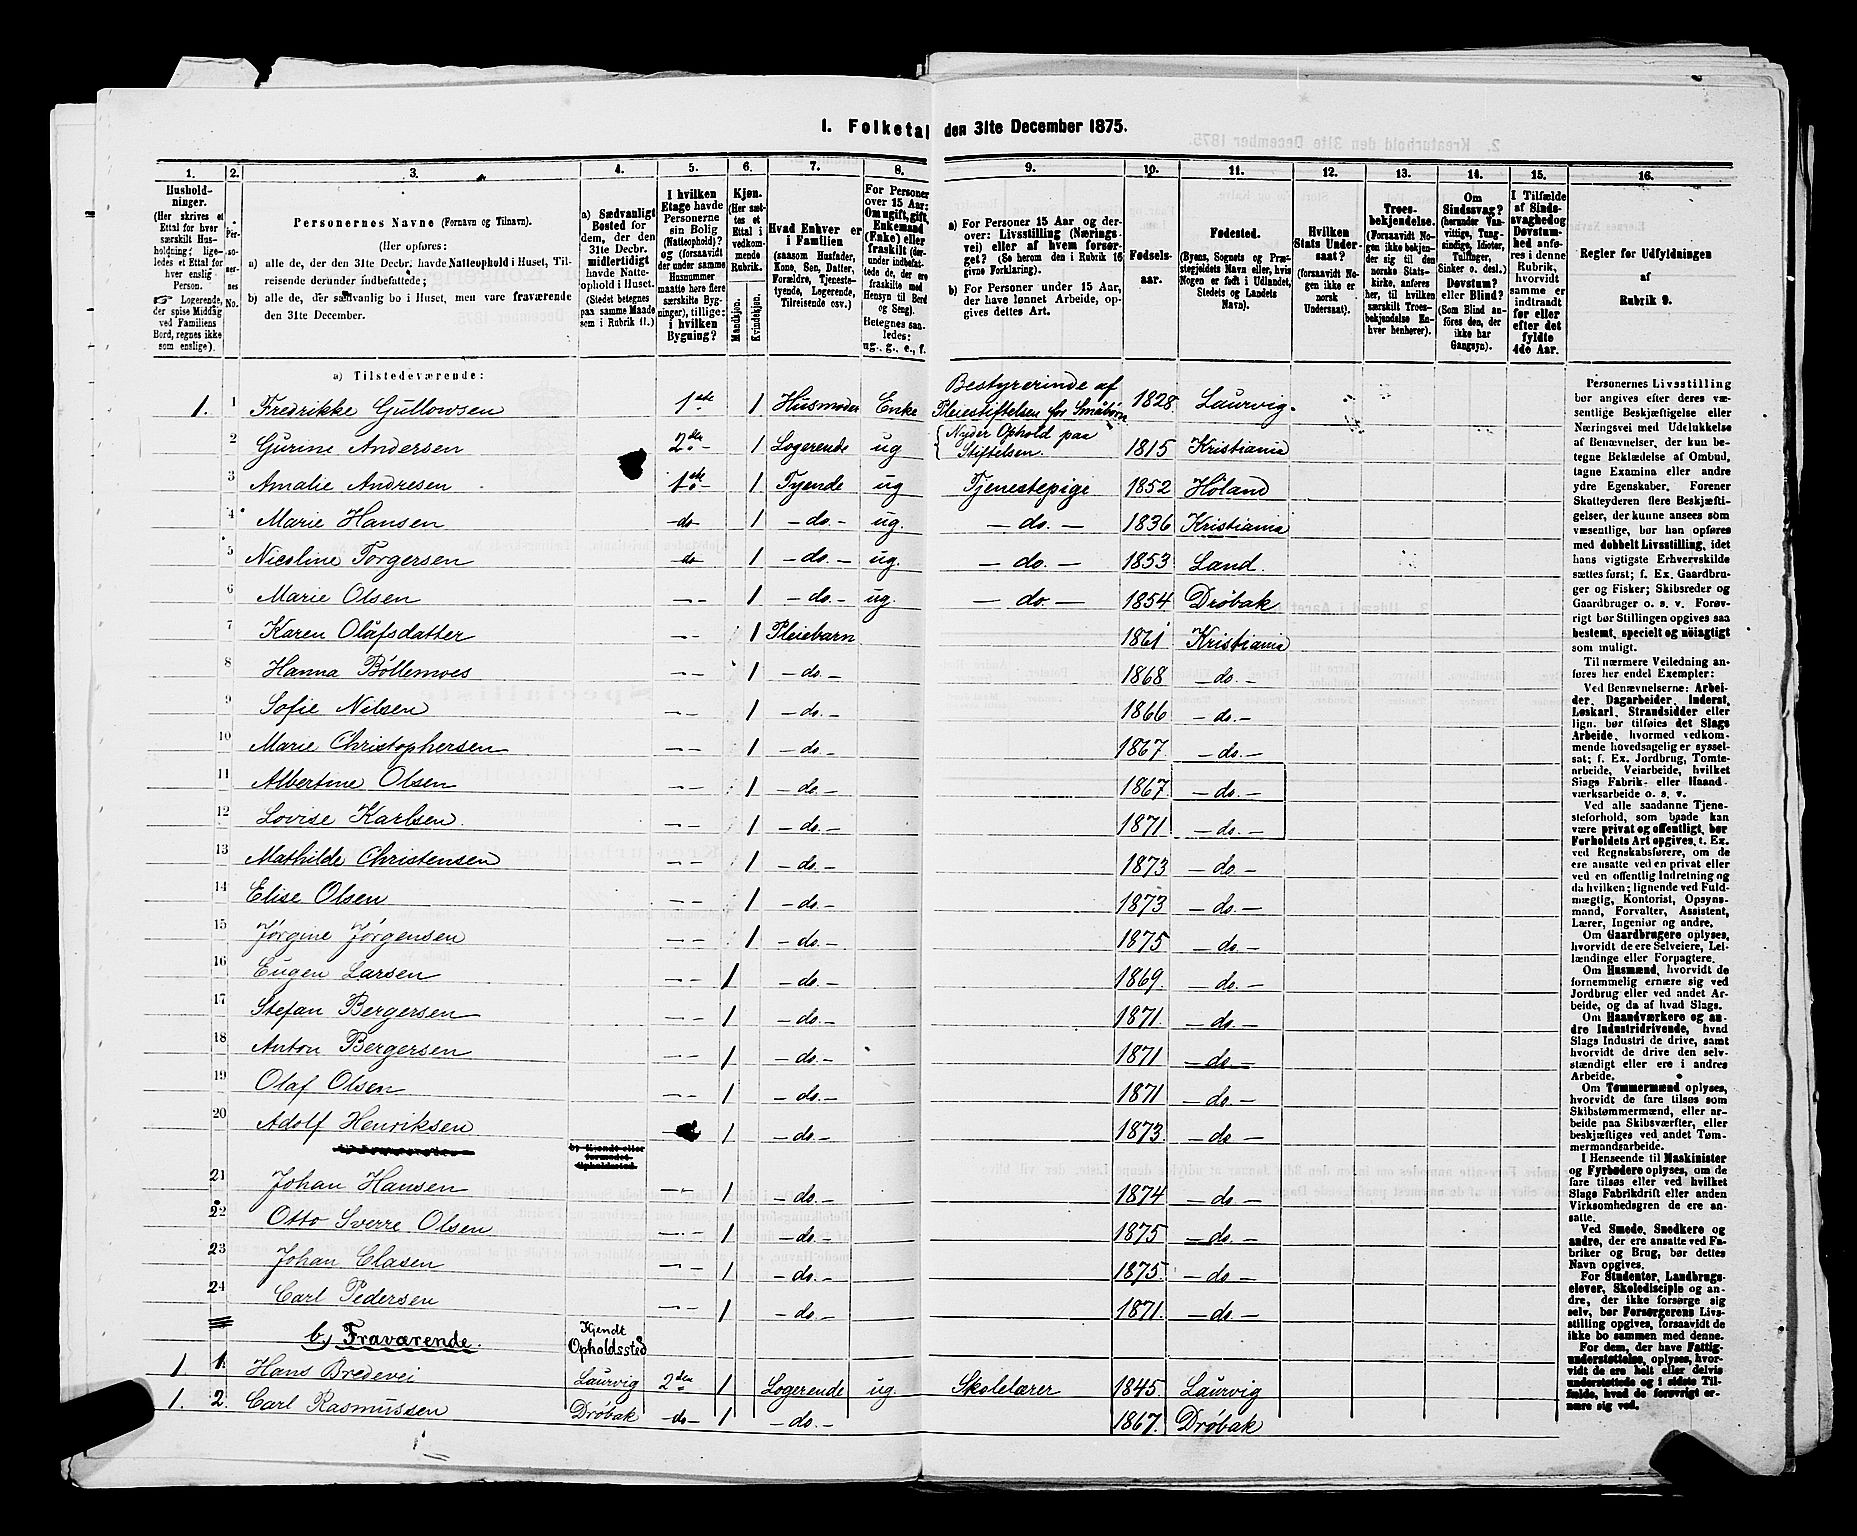 1. Folketal den 31te December 1875.
1. 2. 3. 4. 5. 6. 7. 8. 9. 10. 11. 12. 13. 14. 15. 16.
Hushold-
ninger.
(Her skrives et
Ettal for hver
særskilt Hus-
holdning; lige-
ledes et Ettal for
hver enslig
Person.
☞ Logerende,
der spise Middag
ved Familiens
Bord, regnes ikke
som enslige).
Per-
so-
ner-
nes
No.
Personernes Navne (Fornavn og Tilnavn).
(Her opføres:
a) alle de, der den 31te Decbr. havde Natteophold i Huset, Til-
reisende derunder indbefattede;
b) alle de, der sædvanlig bo i Huset, men vare fraværende
den 31te December.
a) Sædvanligt
Bosted for
dem, der den
31te Decbr.
midlertidigt
havde Natte-
ophold i Huset.
(Stedet betegnes
paa samme Maade
som i Rubrik 11.)
I hvilken
Etage havde
Personerne
sin Bolig
(Natteophold)?
og (forsaavidt
der under samme
Husnummer
maatte høre flere
særskilte Byg-
ninger), tillige:
i hvilken
Bygning?
Kjøn.
(Her sæt-
tes et
Ettal i
vedkom-
mende
Rubrik.
Mandkjøn.
Kvindekjøn.
Hvad Enhver er
i Familien
(saasom Husfader,
Kone, Søn, Datter,
Forældre, Tjeneste-
tyende, Logerende,
Tilreisende osv.)
For Personer
over 15 Aar:
Om ugift, gift,
Enkemand
(Enke) eller
fraskilt (der-
under indbefat-
tede de, der ere
fraskilte med
Hensyn til Bord
og Seng).
Betegnes saa-
ledes:
ug., g., e., f.
a) For Personer 15 Aar og der-
over: Livsstilling (Nærings-
vei) eller af hvem forsør-
get? (Se herom den i Rubrik 16
givne Forklaring).
b) For Personer under 15 Aar,
der have lønnet Arbeide, op-
gives dettes Art.
Fødsels-
aar.
Fødested.
(Byens, Sognets og Præ-
stegjeldets Navn eller, hvis
Nogen er født i Udlandet,
Stedets og Landets
Navn).
Hvilken
Stats Under-
saat?
(forsaavidt No-
gen ikke er
norsk
Undersaat).
Troes-
bekjendelse.
(Forsaavidt No-
gen ikke bekjen-
der sig til den
norske Stats-
kirke, anføres
her, til hvilken
særskilt Troes-
bekjendelse En-
hver henhører).
Om
Sindssvag?
(herunder Van-
vittige, Tung-
sindige, Idioter,
Tullinger,
Sinker o. desl.)
Døvstum?
eller Blind?
(Som Blind an-
føres den, der
ikke har
Gangsyn).
I Tilfælde
af Sinds-
svaghed og
Døvstum-
hed anfø-
res i denne
Rubrik,
hvorvidt
samme er
indtraadt
før eller
efter det
fyldte
4de Aar.
Regler for Udfyldningen
af
Rubrik 9.
a) Tilstedeværende:
1. 1 Fredrikke Gullowsen 1ste 1 Husmoder Enke Bestyrerinde af Pleiestiftelsen for Småbørn 1828 Laurvig.
2 Gurine Andersen 2den 1 Logerende ug Nyder Ophold paa Stiftelsen. 1815 Kristiania
3 Amalie Andresen 1ste 1 Tyende ug Tjenestepige 1852 Höland
4 Marie Hansen do 1 - do. - ug. - do. - 1836 Kristiania
5 Nicoline Torgersen do 1 - do. - ug. - do. - 1853 Land.
6 Marie Olsen - - 1 - do. - ug. - do. - 1854 Dröbak
7 Karen Olafsdatter - - 1 Pleiebarn 1861 Kristiania
8 Hanna Böllemoes - - 1 - do. - 1868 - do. -
9 Sofie Nilsen - - 1 - do. - 1866 - do. -
10 Marie Christophersen - - 1 - do. - 1867 - do. -
11 Albertine Olsen - - 1 - do. - 1867 - do. -
12 Lovise Karlsen. - - 1 - do. - 1871 - do. -
13 Mathilde Christensen - - 1 - do. - 1873 - do. -
14 Elise Olsen - - 1 - do. - 1873 - do. -
15 Jörgine Jörgensen - - 1 - do. - 1875 - do. -
16 Eugen Larsen - - 1 - do. - 1869. - do. -
17 Stefan Bergersen - - 1 - do. - 1871. - do. -
18 Anton Bergersen - - 1 - do. - 1871 - do. -
19 Olaf Olsen - - 1 - do. - 1871 - do. -
20 Adolf Henriksen 1 - do. - 1873 - do. -
21 Johan Hansen - - 1 - do. - 1874 - do. -
22 Otto Sverre Olsen - - 1 - do. - 1875 - do. -
23 Johan Clasen - - 1 - do. - 1875. - do. -
24 Carl Pedersen - - 1 - do. - 1871. - do. -
b) Fraværende. Kjendt Opholdssted
1. 1 Hans Bredevei Laurvig 2den 1 Logerende ug. Skolelærer 1845. Laurvig
1. 2. Carl Rasmussen Dröbak - do - 1 - do. - 1867. Dröbak
Personernes Livsstilling
bør angives efter deres væ-
sentlige Beskjæftigelse eller
Næringsvei med Udelukkelse
af Benævnelser, der kun be-
tegne Beklædelse af Ombud,
tagne Examina eller andre
ydre Egenskaber. Forener
Skatteyderen flere Beskjæfti-
gelser, der kunne ansees som
væsentlige, bør han opføres
med dobbelt Livsstilling, idet
hans vigtigste Erhvervskilde
sættes først; f. Ex. Gaardbru-
ger og Fisker; Skibsreder og
Gaardbruger o. s. v. Forøv-
rigt bør Stillingen opgives saa
bestemt, specielt og nöiagtigt
som muligt.
Til nærmere Veiledning an-
føres her endel Exempler:
Ved Benævnelserne: Arbei-
der, Dagarbeider, Inderst,
Løskarl, Strandsidder eller
lign. bør tilføies det Slags
Arbeide, hvormed vedkom-
mende hovedsagelig er syssel-
sat; f. Ex. Jordbrug, Tomte-
arbeide, Veiarbeide, hvilket
Slags Fabrik- eller Haand-
værksarbeide o. s. v.
Ved alle saadanne Tjene-
steforhold, som baade kan
være privat og offentligt, bør
Forholdets Art opgives, t. Ex.
ved Regnskabsførere, om de
ere ansatte ved en privat eller
ved en offentlig Indretning og
da hvilken; lignende ved Fuld-
mægtig, Kontorist, Opsyns-
mand, Forvalter, Assistent,
Lærer, Ingeniør og andre.
Om Gaardbrugere oplyses,
hvorvidt de ere Selveiere, Lei-
lændinge eller Forpagtere.
Om Husmænd, hvorvidt de
fornemmelig ernære sig ved
Jordbrug eller ved andet Ar-
beide, og da af hvad Slags.
Om Haandværkere og an-
dre Industridrivende, hvad
Slags Industri de drive, samt
hvorvidt de drive den selv-
stændigt eller ere i andres
Arbeide.
Om Tømmermænd oplyses,
hvorvidt de fare tilsøs som
Skibstømmermænd, eller ar-
beide paa Skibsværfter, eller
beskjæftiges ved andet Tøm-
mermandsarbeide.
I Henseende til Maskinister
og Fyrbødere oplyses, om de
fare tilsøs eller ved hvilket
Slags Fabrikdrift eller anden
Virksomhedsgren de ere an-
satte.
Ved Smede, Snedkere og
andre, der ere ansatte ved Fa-
briker og Brug, bør dettes
Navn opgives.
For Studenter, Landbrugs-
elever, Skoledisciple og an-
dre, der ikke forsørge sig
selv, bør Forsørgerens Livs-
stilling opgives, forsaavidt de
ikke bo sammen med denne.
For dem, der have Fattig-
understøttelse, oplyses, hvor-
vidt de ere helt eller delvis
understøttede og i sidste Til-
fælde, hvad de forøvrigt er-
nære sig ved.